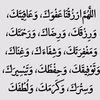 اللَّهُمَّ ارْزُقْنَا عَفْوَكَ، وَعَافِيَتَكَ،
وَرِزْقَكَ، وَرِضَاكَ، وَرَحْمَتَكَ،
وَمَغْفِرَتَكَ، وَشِفَاءَكَ، وَغِنَاكَ،
وَتَوْفِيقَكَ، وَحِفْظَكَ، وَتَيْسِيرَكَ،
وَسِتْرَكَ، وَكَرَمَكَ، وَلُطْفَكَ